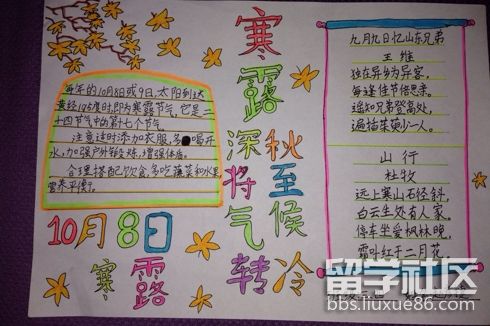 寒露
深秋
将至
气候
转冷
每年的10月8日或9日,太阳到达
黄经195度时,即为寒露节气,它是二
十四节气中的第十七个节气。
注意适时添加衣服,多喝开
水,加强户外锻炼,增强体质。
合理搭配饮食,多吃蔬菜和水果,
营养平衡。
10月8日
寒露
九月九日忆山东兄弟
王维
独在异乡为异客,
每逢佳节倍思亲。
遥知兄弟登高处,
遍插茱萸少一人。
山行
杜牧
远上寒山石径斜,
白云生处有人家。
停车坐爱枫林晚,
霜叶红于二月花。
留学社区
bbs.liuxue86.com